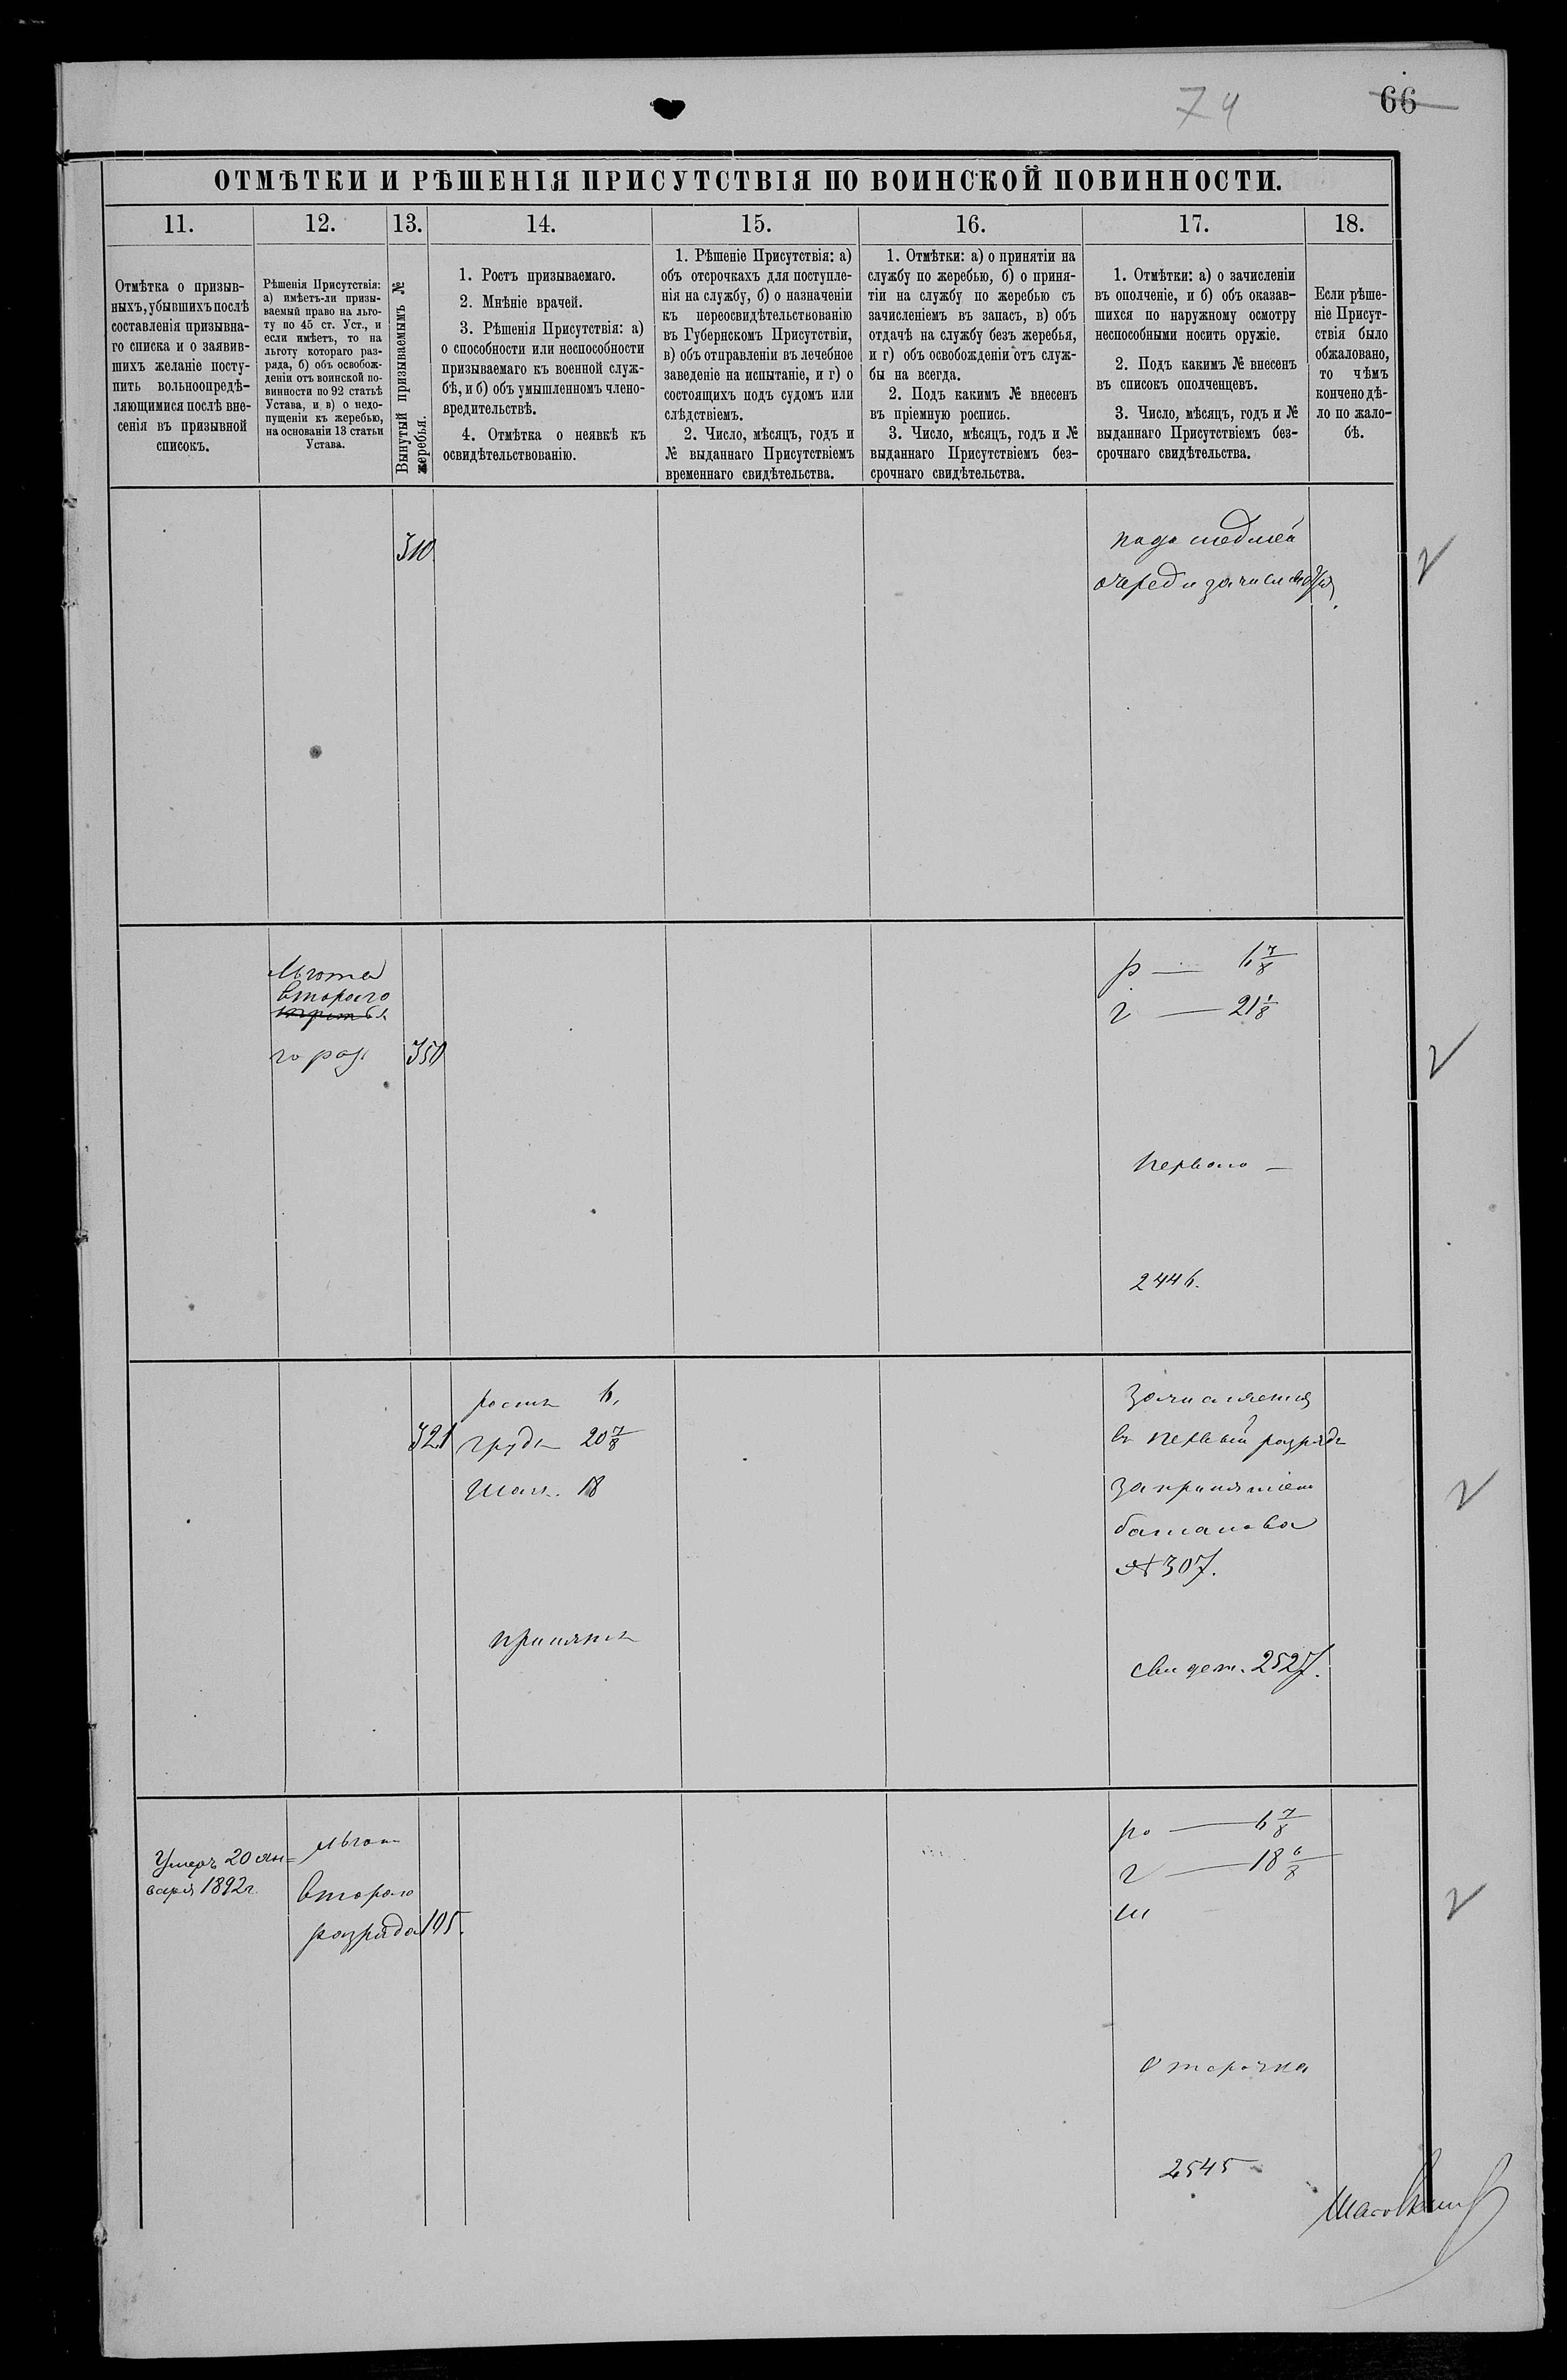 74 66
ОТМѢТКИ И РѢШЕНІЯ ПРИСУТСТВІЯ ПО ВОИНСКОЙ ПОВИННОСТИ.
11. 12. 13. 14. 15. 16. 17. 18.
Отмѣтка о призыв-
ныхъ, убывшихъ послѣ
составленія призывна-
го списка и о заявив-
шихъ желаніе посту-
пить вольноопредѣ-
ляющимися послѣ вне-
сенія въ призывной
списокъ.
Рѣшенія Присутствія:
а) имѣетъ-ли призы-
ваемый право на льго-
ту по 45 ст. Уст., и
если имѣетъ, то на
льготу котораго раз-
ряда, б) объ освобож-
деніи отъ воинской по-
винности по 92 статьѣ
Устава, и в) о недо-
пущеніи къ жеребью,
на основаніи 13 статьи
Устава.
Вынутый призываемымъ №
жеребья.
1. Ростъ призываемаго.
2. Мнѣніе врачей.
3. Рѣшенія Присутствія: а)
о способности или неспособности
призываемаго къ военной служ-
бѣ, и б) объ умышленномъ члено-
вредительствѣ.
4. Отмѣтка о неявкѣ къ
освидѣтельствованію.
1. Рѣшеніе Присутствія: а)
объ отсрочкахъ для поступле-
нія на службу, б) о назначеніи
къ переосвидѣтельствованію
въ Губернскомъ Присутствіи,
в) объ отправленіи въ лечебное
заведеніе на испытаніе, и г) о
состоящихъ подъ судомъ или
слѣдствіемъ.
2. Число, мѣсяцъ, годъ и
№ выданнаго Присутствіемъ
временнаго свидѣтельства.
1. Отмѣтки: а) о принятіи на
службу по жеребью, б) о приня-
тіи на службу по жеребью съ
зачисленіемъ въ запасъ, в) объ
отдачѣ на службу безъ жеребья,
и г) объ освобожденіи отъ служ-
бы на всегда.
2. Подъ какимъ № внесенъ
въ пріемную роспись.
3. Число, мѣсяцъ, годъ и №
выданнаго Присутствіемъ без-
срочнаго свидѣтельства.
1. Отмѣтки: а) о зачисленіи
въ ополченіе, и б) объ оказав-
шихся по наружному осмотру
неспособными носить оружіе.
2. Подъ какимъ № внесенъ
въ списокъ ополченцевъ.
3. Число, мѣсяцъ, годъ и №
выданнаго Присутствіемъ без-
срочнаго свидѣтельства.
Если рѣше-
ніе Присут-
ствія было
обжаловано,
то чѣмъ
кончено дѣ-
ло по жало-
бѣ.
310
очереди
Льгота
второго
го раз
350
р — 6 7/8
г — 21 1/8
первого —
2446.
321
ростъ 6,
грудь 20 7/8
шаг. 18
принятъ
зачисляется
въ первый разрядъ
за принятіем
№ 307.
свидет. 2527.
Умеръ 20 ян=
варя 1892г.
льгота
второго
разряда
195.
ро — 6 7/8
г — 18 6/8
ш
Отсрочка
2545